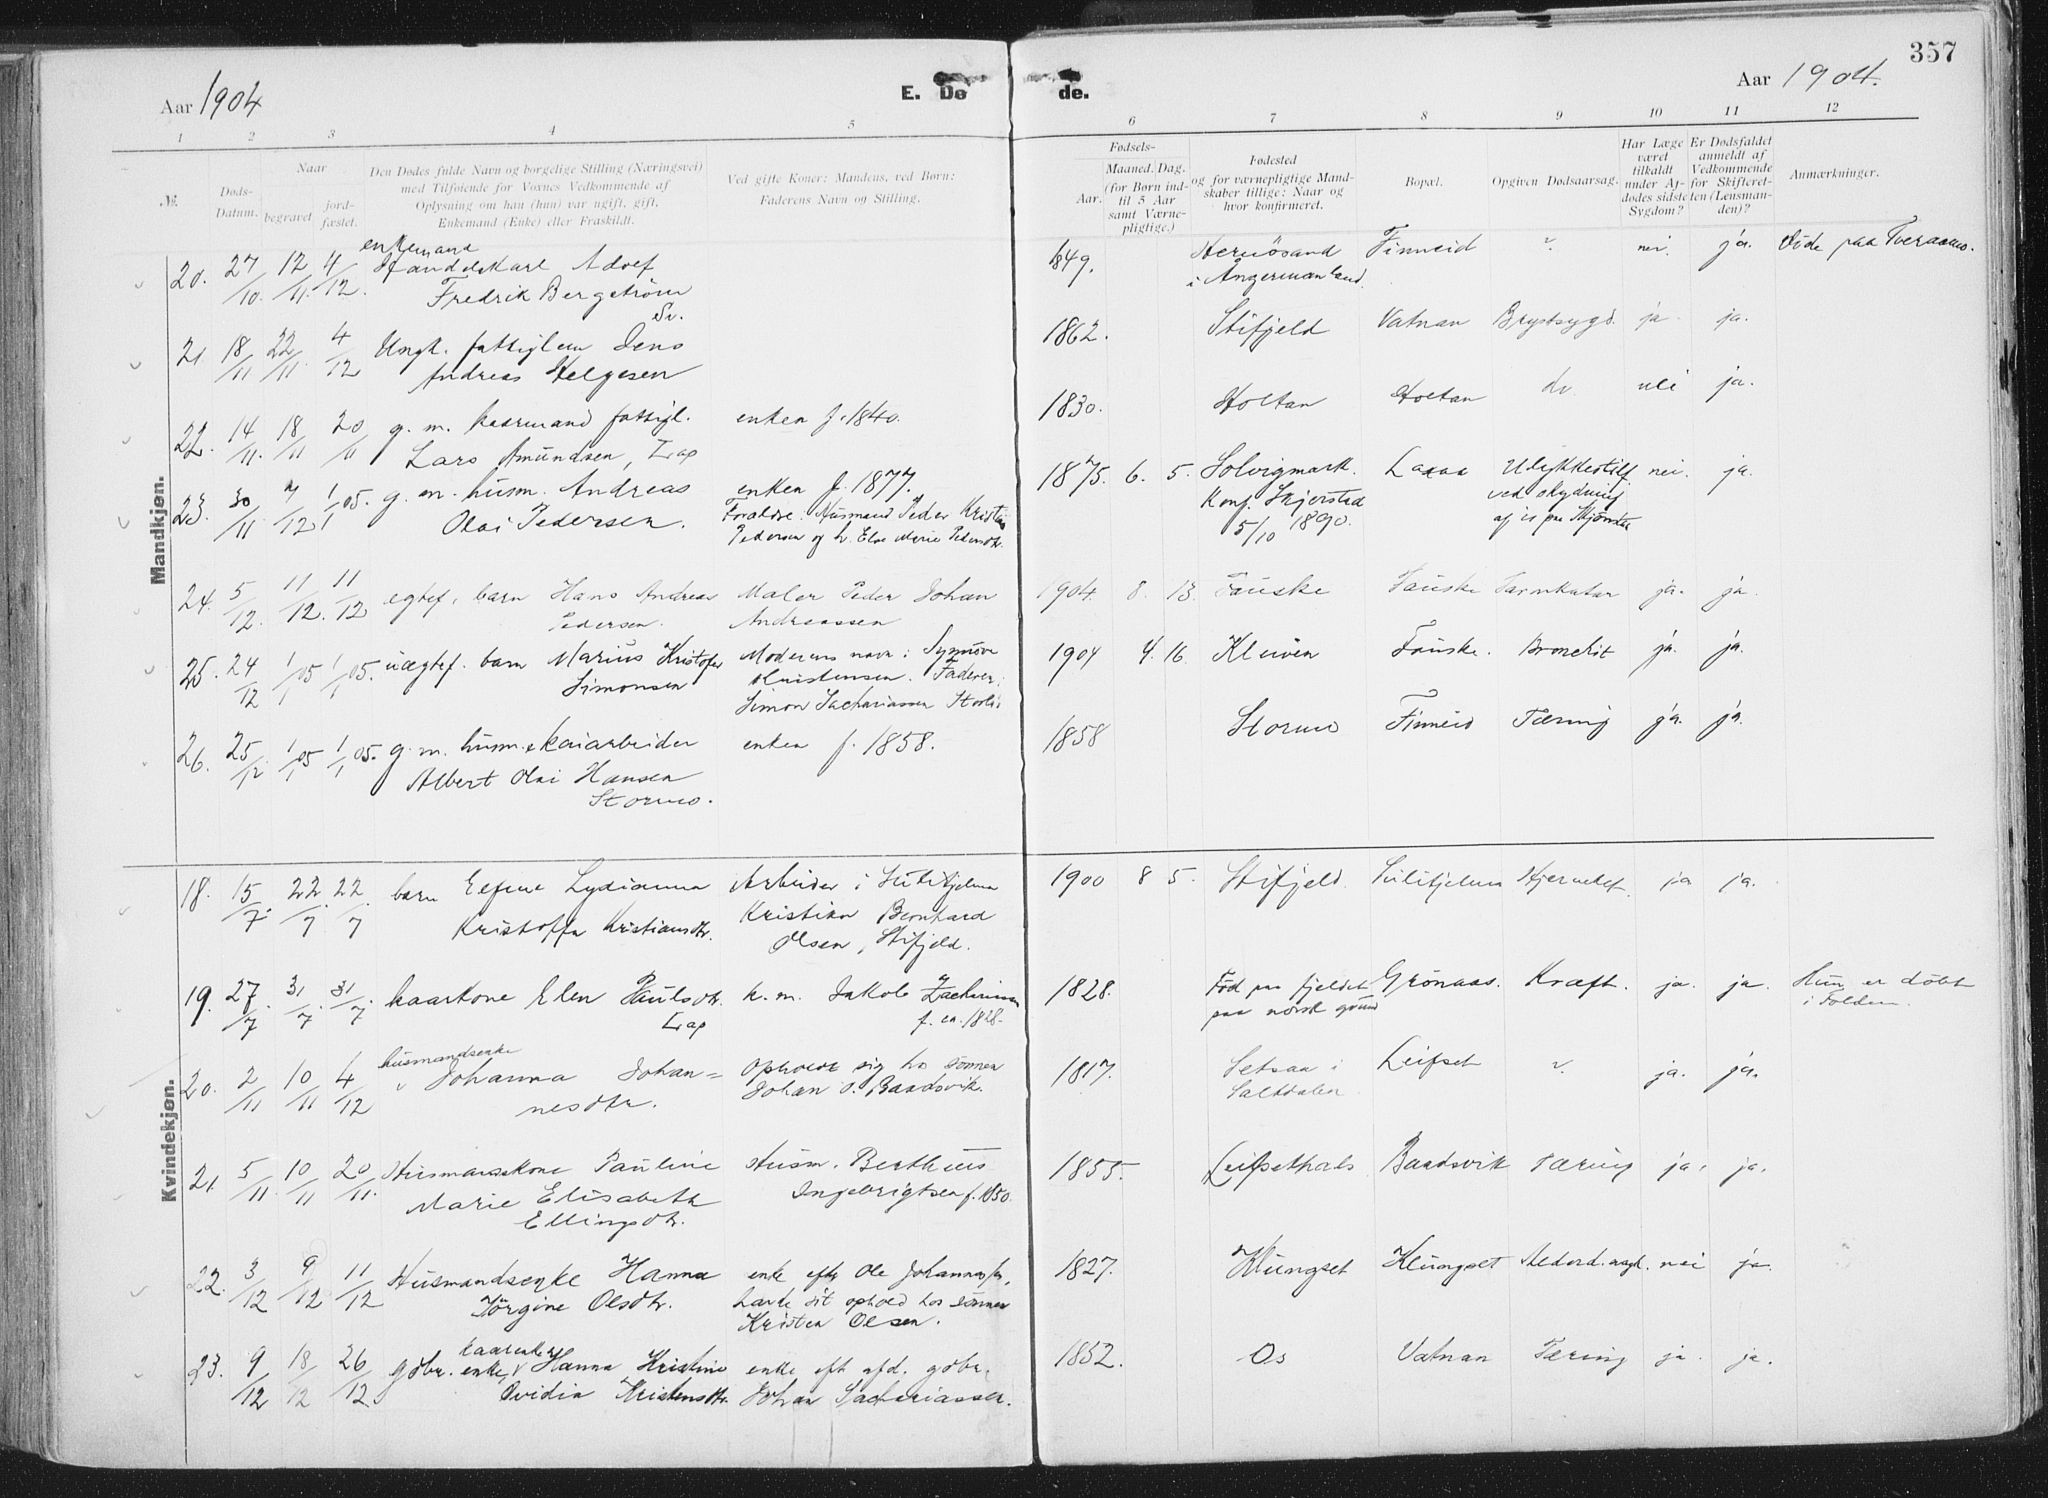 357
Aar 1904
E. Dø de.
Aar 1904.
1 2 3 4 5 6 7 8 9 10 11 12
№.
Døds-Datum.
Naar
begravet
jord-fæstet.
Den Dødes fulde Navn og borgelige Stilling (Næringsvei)
med Tilføiende for Voxnes Vedkommende af
Oplysning om han (hun) var ugift, gift,
Enkemand (Enke) eller Fraskildt.
Ved gifte Koner: Mandens, ved Børn:
Faderens Navn og Stilling.
Fødsels-
Aar.
Maaned. Dag.
(for Børn ind-
til 5 Aar
samt Værne-
pligtige.)
Fødested
og for værnepligtige Mand-
skaber tillige: Naar og
hvor konfirmeret.
Bopæl.
Opgiven Dødsaarsag.
Har Læge
været
tilkaldt
under Af-
dødes sidste
Sygdom?
Er Dødsfaldet
anmeldt af
Vedkommende
for Skifteret-
ten (Lensman-
den)?
Anmærkninger.
Mandkjøn.
20. 27/10. 12/11. 4/12. enkemand Handelskarl Adolf 1849. Hernösand Finneid ? nei. ja. Döde paa Tveraamo.
Fredrik Bergström i Ångermanland.
Sv.
21 18/11 22/11. 4/12 Ungk. fattiglem Jens 1862. Stifjeld Vatnan Brystsygd. ja. ja.
Andreas Helgesen
22. 14/11. 18/11 20/11 g. m. kaarmand fattigl. enken f. 1840. 1830. Holtan Holtan do nei ja.
Lars Amundsen, Lap
23. 30/11. 7/12 1/1 05. g. m. husm. Andreas enken f. 1877. 1875. 6. 5. Solvigmark. Laxaa Ulykkestilf nei. ja.
Olai Pedersen. Forældre: Husmand Peder Kristian Konf. Skjerstad ved skydning
Pedersen og h. Else Marie Pedersdtr. 5/10 1890. af is paa Skjönsta
24. 5/12. 11/12. 11/12 egtef. barn Hans Andreas Maler Peder Johan 1904. 8. 13. Fauske Fauske Tarmkatar ja. ja.
Pedersen. Andreassen
25. 24/12 1/1 05 1/1 05. uægtef. barn Marius Kristofer Moderens navn: Synnöve 1904 4. 16. Kleiven Fauske. Bronchit ja. ja.
Simonsen Kristensen. Faderen:
Simon Zachariassen Storli
26. 25/12 1/1 05 1/1 05. g. m. husm. & kaiarbeider enken f. 1858. 1858 Stormo Finneid Tæring ja. ja.
Albert Olai Hansen
Stormo.
Kvindekjøn.
18. 15/7. 22/7. 22/7. barn Elfine Lydianna Arbeider i Sulitjelma 1900 8 5. Stifjeld. Sulitjelma Hjernebet. ja ja.
Kristoffa Kristiansdtr. Kristian Bernhard
Olsen, Stifjeld.
19. 27/7. 31/7. 31/7. kaarkone Elen Paulsdtr. k. m. Jakob Zachariassen 1828. Föd paa fjeldet Grönaas. Kræft. ja. ja. Hun er döbt
Lap f. ca. 1828. paa norsk grund i Folden.
20. 2/11 10/11 4/12 husmandsenke Johanna Johan= opholdt sig hos sönnen 1817. Setsaa i Leifset ? ja. ja.
nesdtr. Johan O. Baadsvik. Saltdalen
21. 5/11. 10/11 20/11. Husmandskone Pauline Husm. Berthius 1855. Leifsethals Baadsvik Tæring ja. ja.
Marie Elisabeth Ingebrigtsen f. 1850.
Ellingsdtr.
22. 3/12 9/12 11/12 Husmandsenke Hanna enke eft. Ole Johannessen, 1827. Klungset Klungset Alderd. nei ja.
Jörgine Olsdtr. havde sit ophold hos sönnen
Kristen Olsen.
23. 9/12 18/12 26/12. gdbr. enke, kaarenke Hanna Kristine enke eft. afd. gdbr. 1852. Os Vatnan Tæring ja. ja.
Ovidia Kristensdtr. Johan Zachariassen.